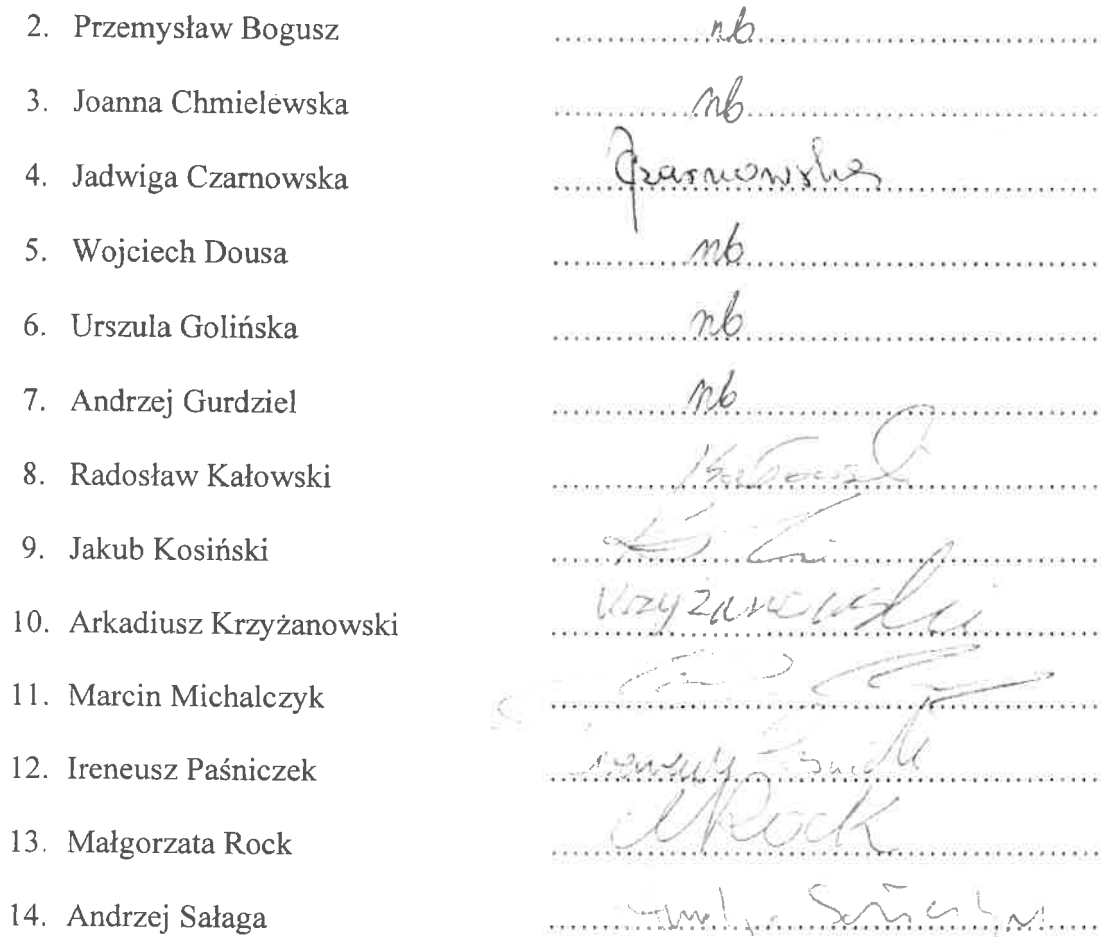 2. Przemysław Bogusz nb
3. Joanna Chmielewska nb
4. Jadwiga Czarnowska Czarnowska
5. Wojciech Dousa nb
6. Urszula Golińska nb
7. Andrzej Gurdziel nb
8. Radosław Kałowski
9. Jakub Kosiński
10. Arkadiusz Krzyżanowski Krzyżanowski
11. Marcin Michalczyk
12. Ireneusz Paśniczek
13. Małgorzata Rock MRock
14. Andrzej Sałaga